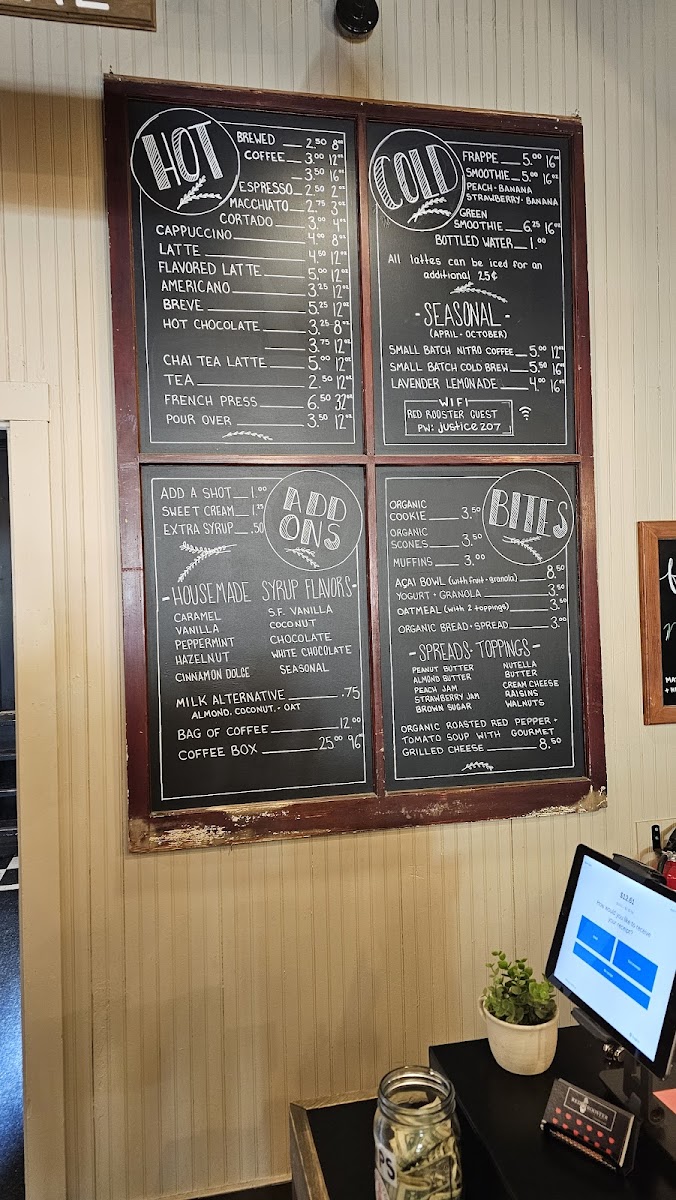 HOT
BREWED 2.50 8oz
COFFEE 3.00 12oz
3.50 16oz
ESPRESSO 2.50 2oz
MACCHIATO 2.75 3oz
CORTADO 3.00 4oz
CAPPUCCINO 4.00 8oz
LATTE 4.50 12oz
FLAVORED LATTE 5.00 12oz
AMERICANO 3.25 12oz
BREVE 5.25 12oz
HOT CHOCOLATE 3.25 8oz
3.75 12oz
CHAI TEA LATTE 5.00 12oz
TEA 2.50 12oz
FRENCH PRESS 6.50 32oz
POUR OVER 3.50 12oz
COLD
FRAPPE 5.00 16oz
SMOOTHIE 5.00 16oz
PEACH · BANANA
STRAWBERRY · BANANA
GREEN
SMOOTHIE 6.25 16oz
BOTTLED WATER 1.00
All lattes can be iced for an
additional 25¢
- SEASONAL -
(APRIL - OCTOBER)
SMALL BATCH NITRO COFFEE 5.00 12oz
SMALL BATCH COLD BREW 5.50 16oz
LAVENDER LEMONADE 4.00 16oz
WIFI
RED ROOSTER GUEST
PW: justice207
ADD A SHOT 1.00
SWEET CREAM 1.25
EXTRA SYRUP .50
ADD
ONS
- HOUSEMADE SYRUP FLAVORS -
CARAMEL S.F. VANILLA
VANILLA COCONUT
PEPPERMINT CHOCOLATE
HAZELNUT WHITE CHOCOLATE
CINNAMON DOLCE SEASONAL
MILK ALTERNATIVE .75
ALMOND, COCONUT, - OAT
BAG OF COFFEE 12.00
COFFEE BOX 25.00 96oz
BITES
ORGANIC
COOKIE 3.50
ORGANIC
SCONES 3.50
MUFFINS 3.00
AÇAI BOWL (with fruit + granola) 8.50
YOGURT + GRANOLA 3.50
OATMEAL (with 2 toppings) 3.50
ORGANIC BREAD + SPREAD 3.00
- SPREADS + TOPPINGS -
PEANUT BUTTER NUTELLA
ALMOND BUTTER BUTTER
PEACH JAM CREAM CHEESE
STRAWBERRY JAM RAISINS
BROWN SUGAR WALNUTS
ORGANIC ROASTED RED PEPPER +
TOMATO SOUP WITH GOURMET
GRILLED CHEESE 8.50
How would you like to receive
your receipt?